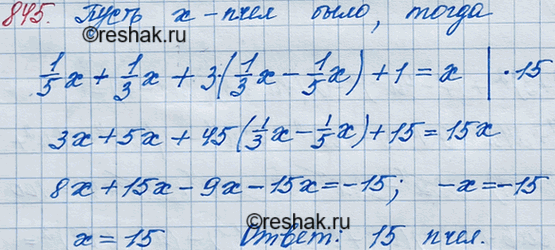 845. Пусть x - пчел было, тогда
©reshak.ru
1/5x + 1/3x + 3·(1/3x - 1/5x) + 1 = x | · 15
3x + 5x + 45(1/3x - 1/5x) + 15 = 15x
8x + 15x - 9x - 15x = -15; -x = -15
x = 15 Ответ: 15 пчел.
©reshak.ru